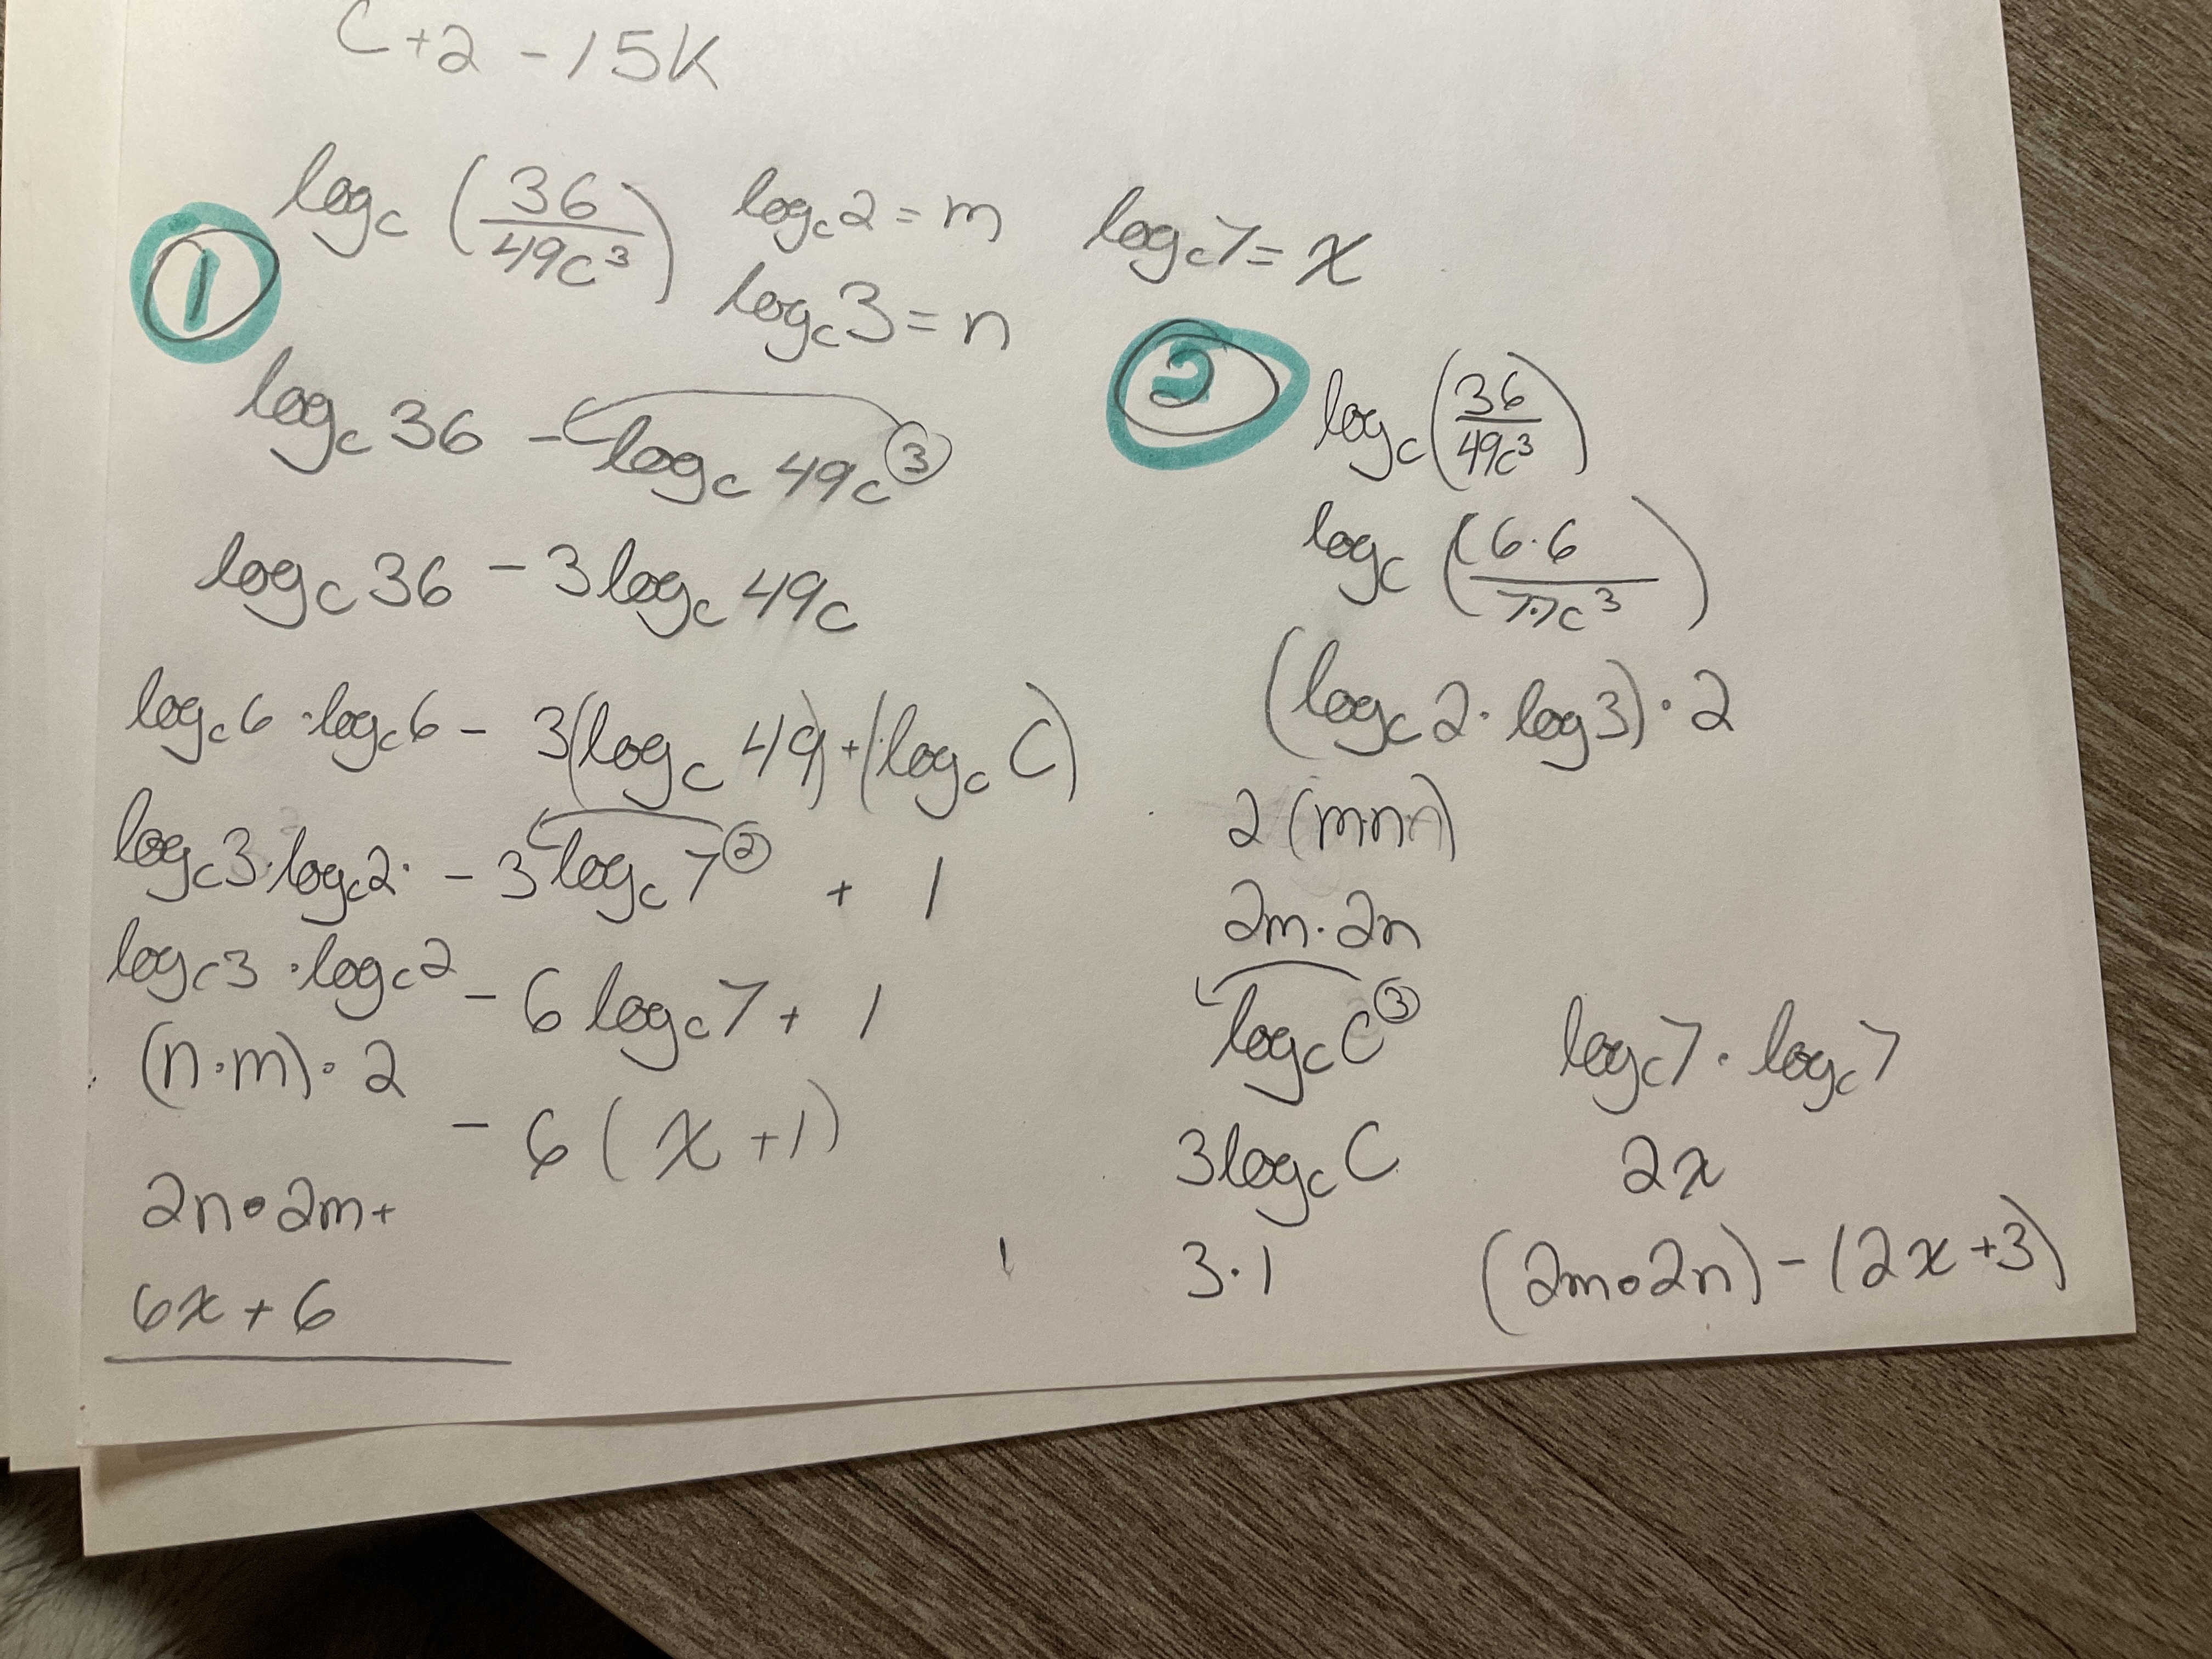 C+2 -15K
log_c (36/49c³) log_c 2 = m log_c 7 = x
log_c 3 = n
①
log_c 36 - log_c 49c③
log_c 36 - 3log_c 49c
log_c 6 · log_c 6 - 3(log_c 49) + (log_c C)
log_c 3 · log_c 2 · - 3 log_c 7② + 1
log_c 3 · log_c 2 - 6 log_c 7 + 1
(n·m)·2 - 6(x+1)
2n•2m+
6x+6
②
log_c (36/49c³)
log_c (6·6/7·7c³)
(log_c 2 · log 3)·2
2(m·n)
2m·2n
log_c C③ log_c 7 · log_c 7
3log_c C 2x
3·1 (2m•2n) - (2x+3)